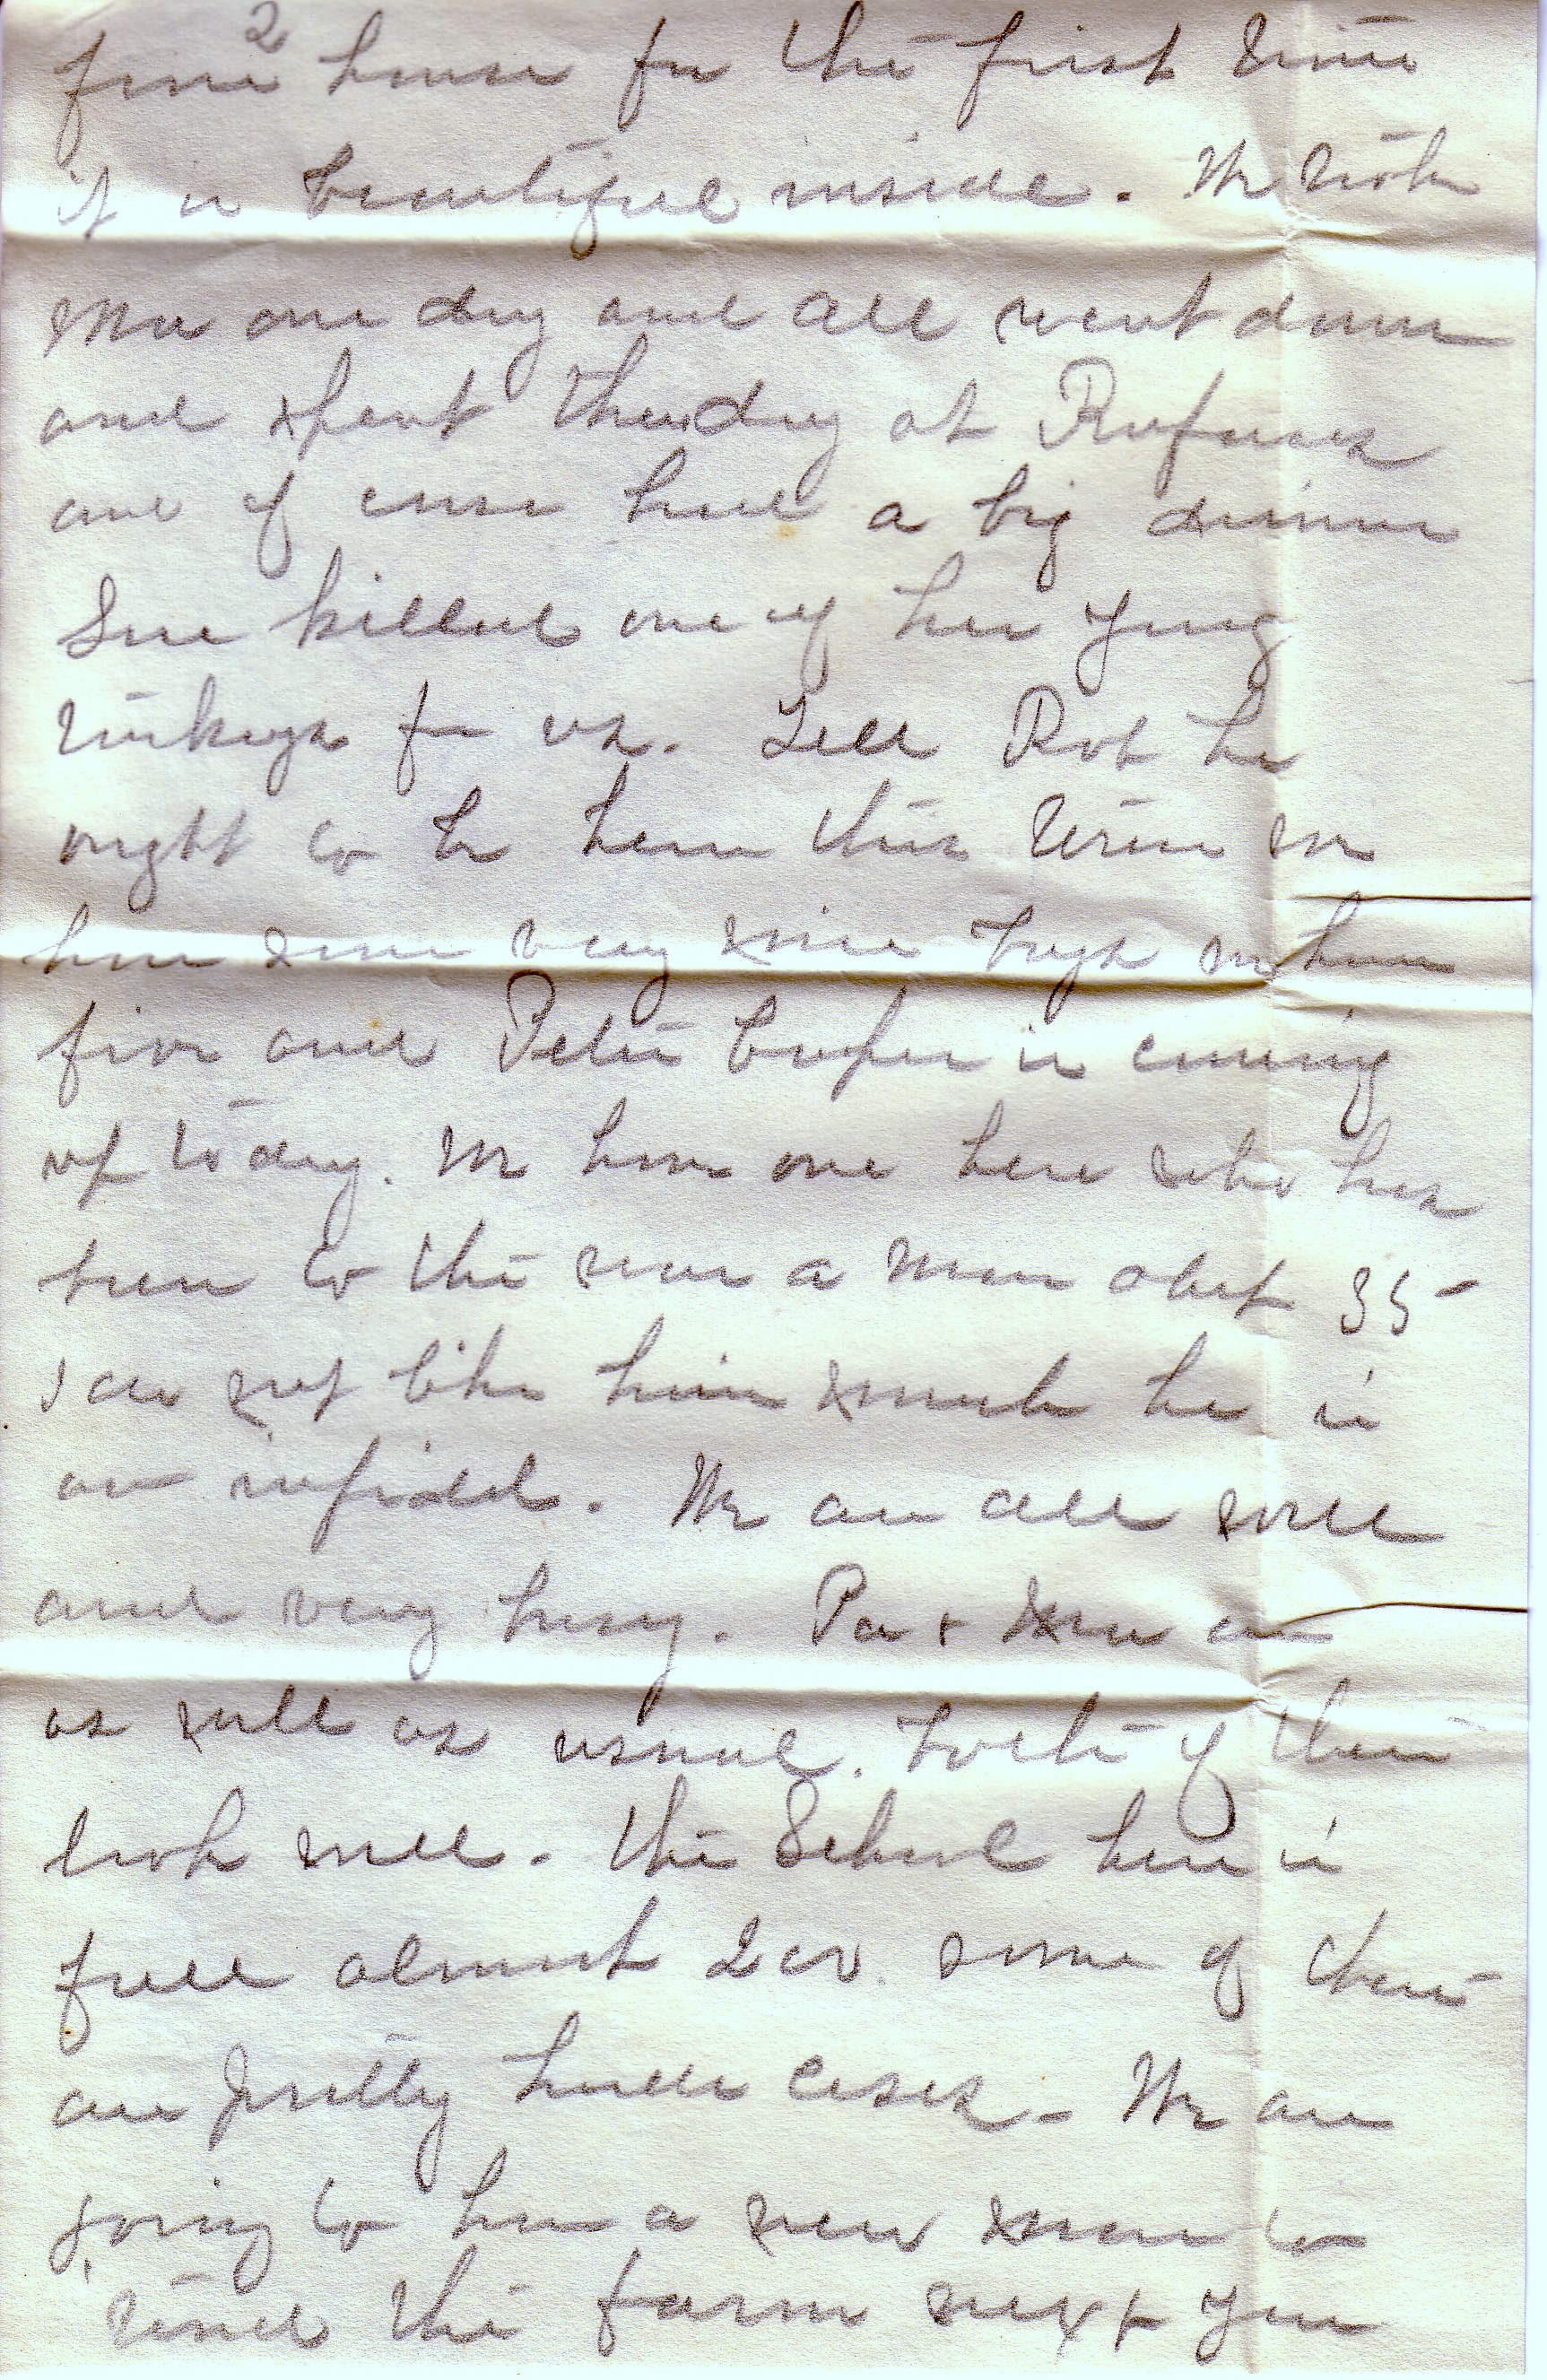 2
fine house for the first time
it is beautiful inside. We took
Ma one day and all went down
and spent the day at Rufuses
and of course had a big dinner
Sue killed one of her young
turkeys for us. Tell Rob he
ought to be here this time we
have some very nice boys we have
five and Peter Cooper is coming
up to day. We have one here who has
been to the war a man about 35
I do not like him much he is
an infidel. We are all well
and very busy. Pa & Ma are
as well as usual. both of them
look well. The School here is
full almost 200. some of them
are pretty hard cases - We are
going to have a new man to
tend the farm next year